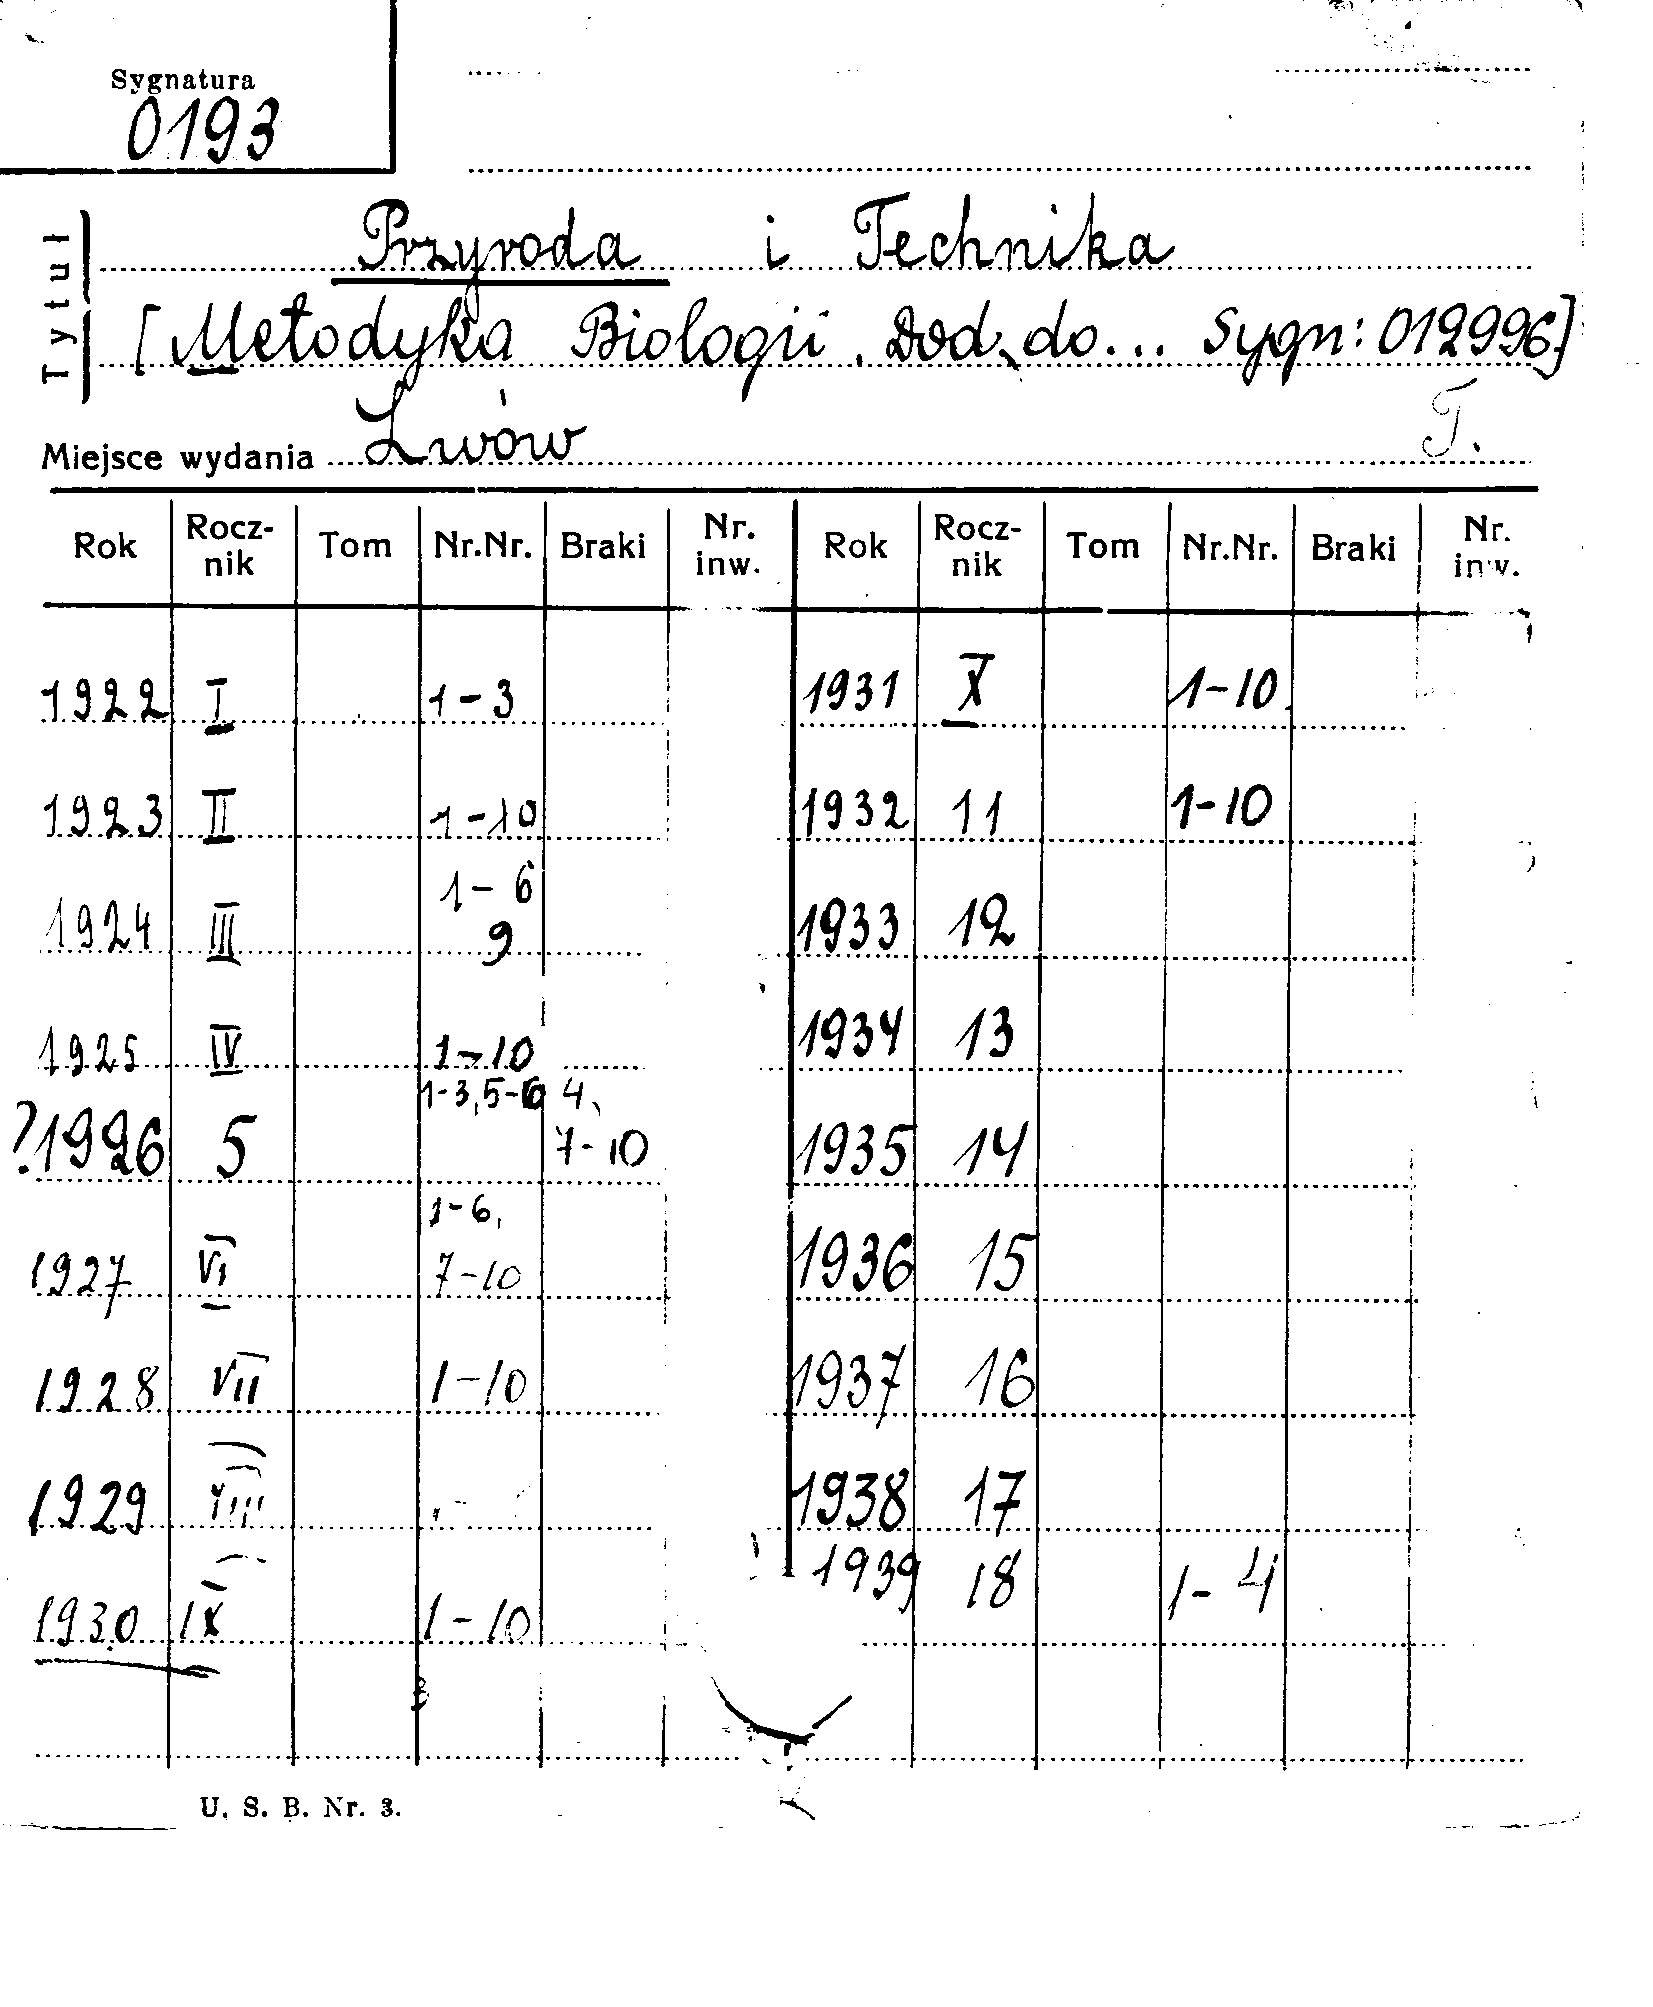 Sygnatura
0193
Tytuł
Przyroda i Technika
[Metodyka Biologii. Dod. do... Sygn: 012996.]
Miejsce wydania Lwów
T.
Rok Rocz-nik Tom Nr.Nr. Braki Nr. inw. Rok Rocz-nik Tom Nr.Nr. Braki Nr. inw.
1922 I 1-3 1931 X 1-10
1923 II 1-10 1932 11 1-10
1924 III 1-6 9 1933 12
1925 IV 1-10 1934 13
?1926 5 1-3,5-6 4, 7-10 1935 14
1927 VI 1-6, 7-10 1936 15
1928 VII 1-10 1937 16
1929 VIII 1938 17
1930 IX 1-10 1939 18 1-4
U. S. B. Nr. 3.